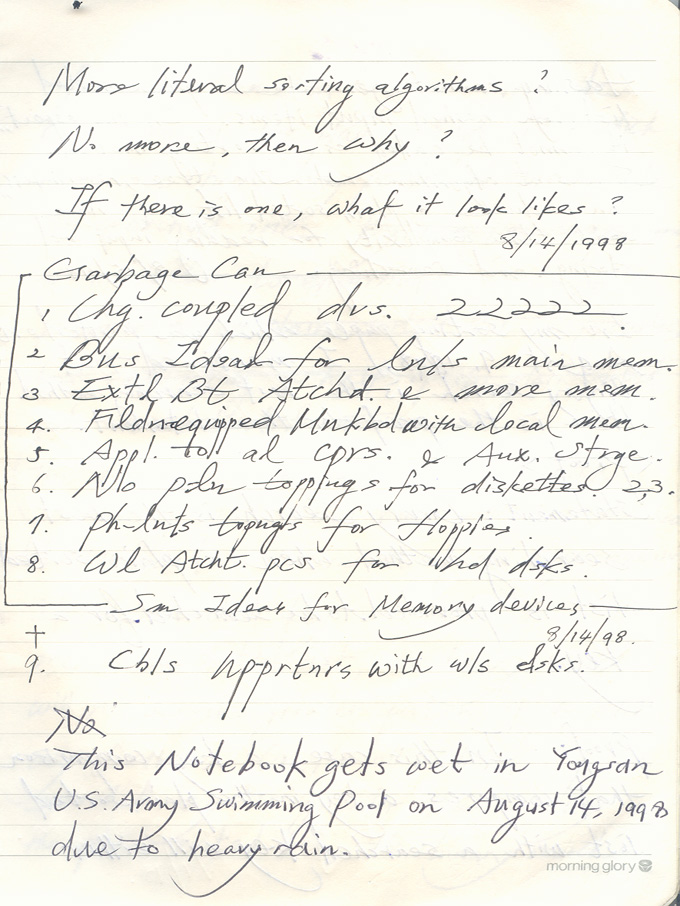 More literal sorting algorithms ?
No more, then why ?
If there is one, what it look likes ?
8/14/1998
Garbage Can
1 Chg. coupled dvs. 22222.
2 Bus Ideas for main mem.
3 Extl Bt Atchd. & more mem.
4. with local mem.
5. Appl. to al cprs. & Aux. Strge.
6. No ptn toppings for diskettes. 2,3.
7. Ph-lnts topngs for floppies.
8. Wl Atcht. pcs for hd dsks.
Sm Ideas for Memory devices
8/14/98.
+
9. Cbls with wls dsks.
No
This Notebook gets wet in Yongsan
U.S. Army Swimming Pool on August 14, 1998
due to heavy rain.
morning glory